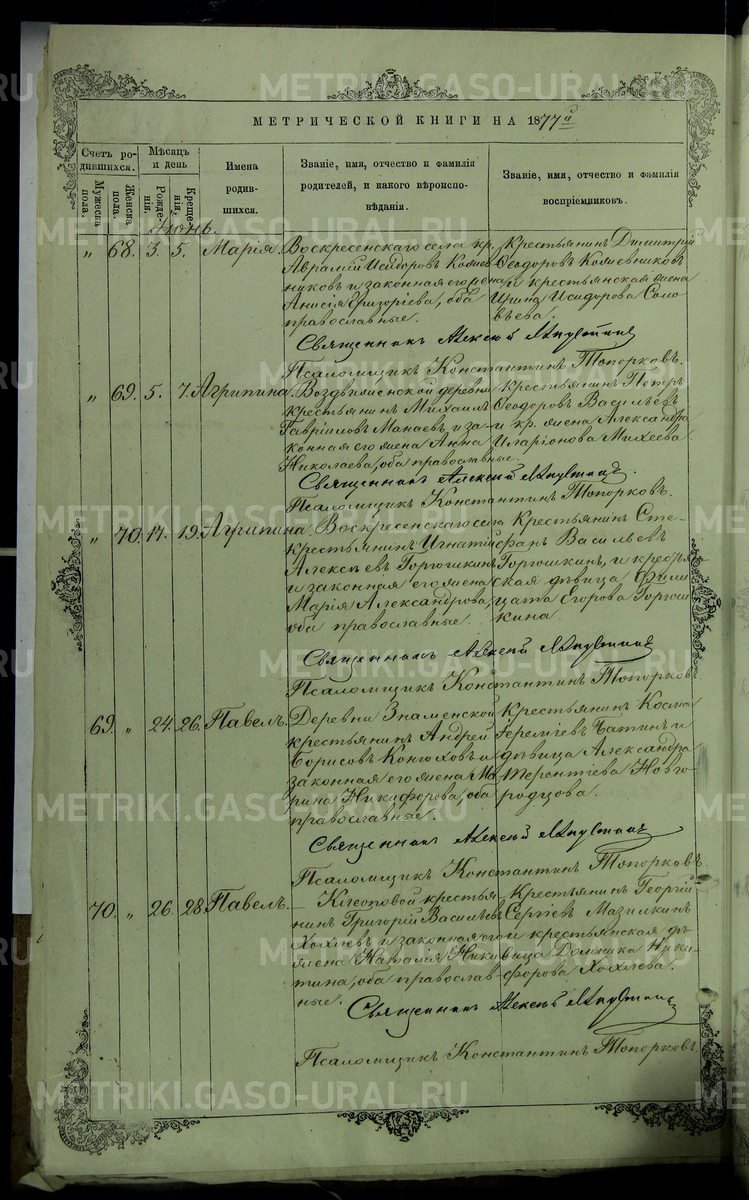 МЕТРИЧЕСКОЙ КНИГИ НА 1877й
Счетъ ро-
дившихся.
Мужеска
пола.
Женска
пола.
Мѣсяцъ
и день
Рожде-
нія.
Креще-
нія.
Имена
родив-
шихся.
Званіе, имя, отчество и фамилія
родителей, и какого вѣроиспо-
вѣданія.
Званіе, имя, отчество и фамилія
воспріемниковъ.
Іюнь.
„ 68. 3. 5. Марія.
Воскресенскаго села кр.
Аврамій Исидоровъ
никовъ и законная его жена
Анисія Григоріева, оба
православные.
Крестьянинъ Димитрій
Ѳеодоровъ Коляевниковъ
и крестьянская жена
Ирина Исидорова Соло-
вьева.
Священникъ Алексій
Псаломщикъ Константинъ Топорковъ.
„ 69. 5. 7. Агрипина.
Воздвиженской деревни
крестьянинъ Михаилъ
Гавріиловъ Манаевъ и за-
конная его жена Анна
Николаева, оба православные.
Крестьянинъ Петръ
Ѳеодоровъ Васильевъ
и кр. жена Александра
Иларіонова Михеева
Священникъ Алексій
Псаломщикъ Константинъ Топорковъ.
„ 70. 17. 19. Агрипина
Воскресенскаго села
крестьянинъ Игнатій
Алексѣевъ Горюшкинъ
и законная его жена
Марія Александрова,
оба православные.
Крестьянинъ Сте-
фанъ Васильевъ
Горюшкинъ, и крестья-
ская дѣвица Фили-
цата Егорова Горюш-
кина.
Священникъ Алексій
Псаломщикъ Константинъ Топорковъ
69. „ 24. 26. Павелъ.
Деревни Знаменской
крестьянинъ Андрей
Борисовъ Конюховъ и
законная его жена Ма-
рина Никифорова, оба
православные.
Крестьянинъ Косма
Іереміевъ Батинъ и
дѣвица Александра
Терентіева Новго-
родцова.
Священникъ Алексій
Псаломщикъ Константинъ Топорковъ.
70. „ 26. 28. Павелъ.
крестья-
нинъ Григорій Васильевъ
Хохлевъ и законная его
жена Наталія Ники-
тина, оба православ-
ные.
Крестьянинъ Георгій
Сергіевъ Мазилкинъ
и крестьянская дѣ-
вица Домника Ники-
форова Хохлева.
Священникъ Алексій
Псаломщикъ Константинъ Топорковъ
METRIKI.GASO-URAL.RU